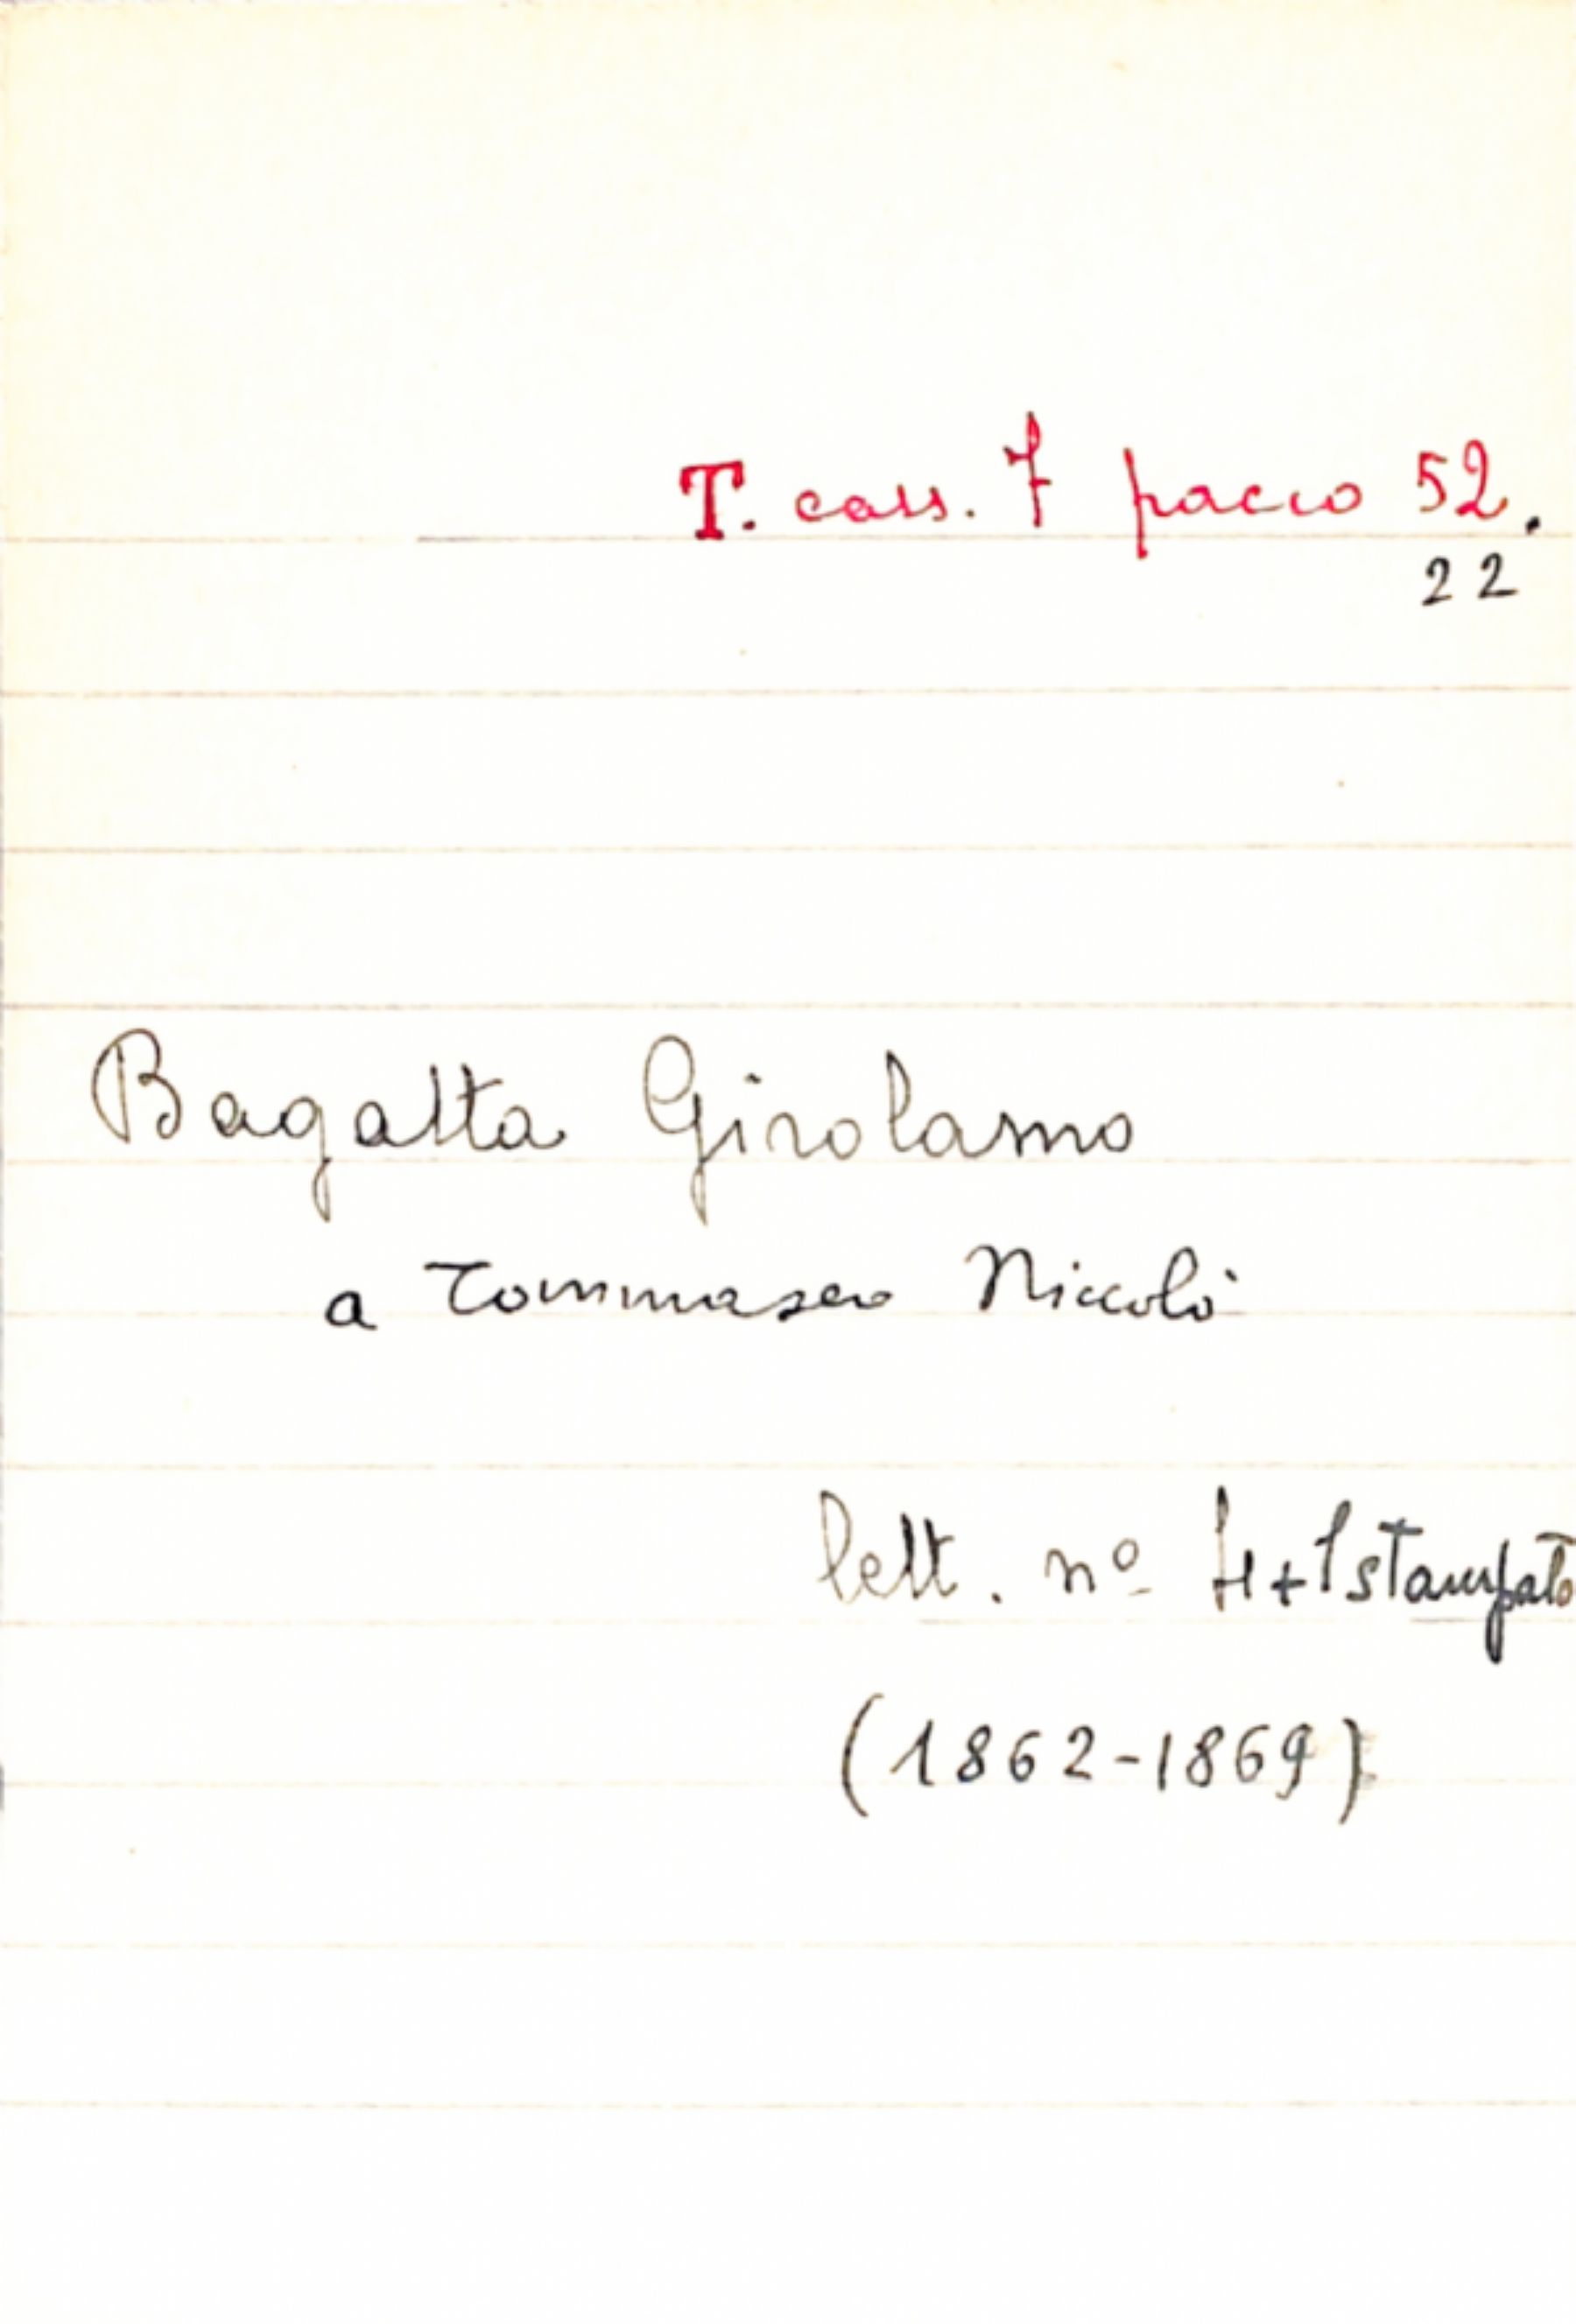 T. cass. 7 pacco 52.
22
Bagatta Girolamo
a Tommaseo Niccolò
lett. nº 4+1 stampato
(1862-1869)